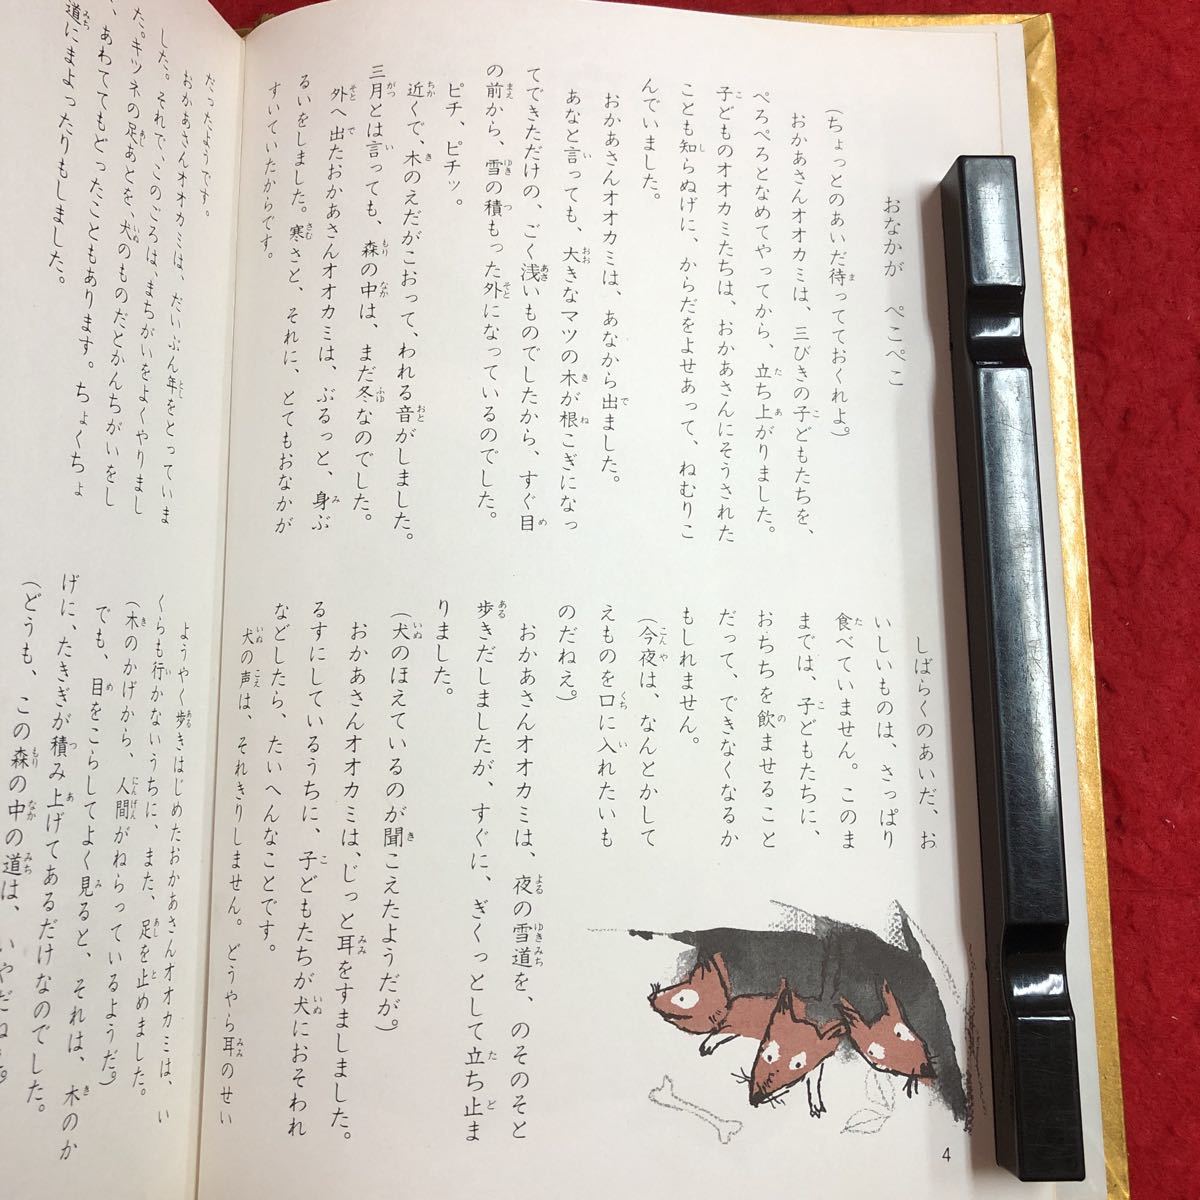 おなかが　ぺこぺこ
(ちょっとのあいだ待ってておくれよ。)
おかあさんオオカミは、三びきの子どもたちを、
ぺろぺろとなめてやってから、立ち上がりました。
子どものオオカミたちは、おかあさんにそうされた
ことも知らぬげに、からだをよせあって、ねむりこ
んでいました。
おかあさんオオカミは、あなから出ました。
あなと言っても、大きなマツの木が根こぎになっ
てできただけの、ごく浅いものでしたから、すぐ目
の前から、雪の積もった外になっているのでした。
ピチ、ピチッ。
近くで、木のえだがこおって、われる音がしました。
三月とは言っても、森の中は、まだ冬なのでした。
外へ出たおかあさんオオカミは、ぶるっと、身ぶ
るいをしました。寒さと、それに、とてもおなかが
すいていたからです。
しばらくのあいだ、お
いしいものは、さっぱり
食べていません。このま
までは、子どもたちに、
おちちを飲ませること
だって、できなくなるか
もしれません。
(今夜は、なんとかして
えものを口に入れたいも
のだねえ。)
おかあさんオオカミは、夜の雪道を、のそのそと
歩きだしましたが、すぐに、ぎくっとして立ち止ま
りました。
(犬のほえているのが聞こえたようだが。)
おかあさんオオカミは、じっと耳をすましました。
るすにしているうちに、子どもたちが犬におそわれ
などしたら、たいへんなことです。
犬の声は、それきりしません。どうやら耳のせい
4
だったようです。
おかあさんオオカミは、だいぶん年をとっていま
した。それで、このごろは、まちがいをよくやりまし
た。キツネの足あとを、犬のものだとかんちがいをし
、あわててもどったこともあります。ちょくちょ
道にまよったりもしました。
ようやく歩きはじめたおかあさんオオカミは、い
くらも行かないうちに、また、足を止めました。
(木のかげから、人間がねらっているようだ。)
でも、目をこらしてよく見ると、それは、木のか
げに、たきぎが積み上げてあるだけなのでした。
(どうも、この森の中の道は、いやだね